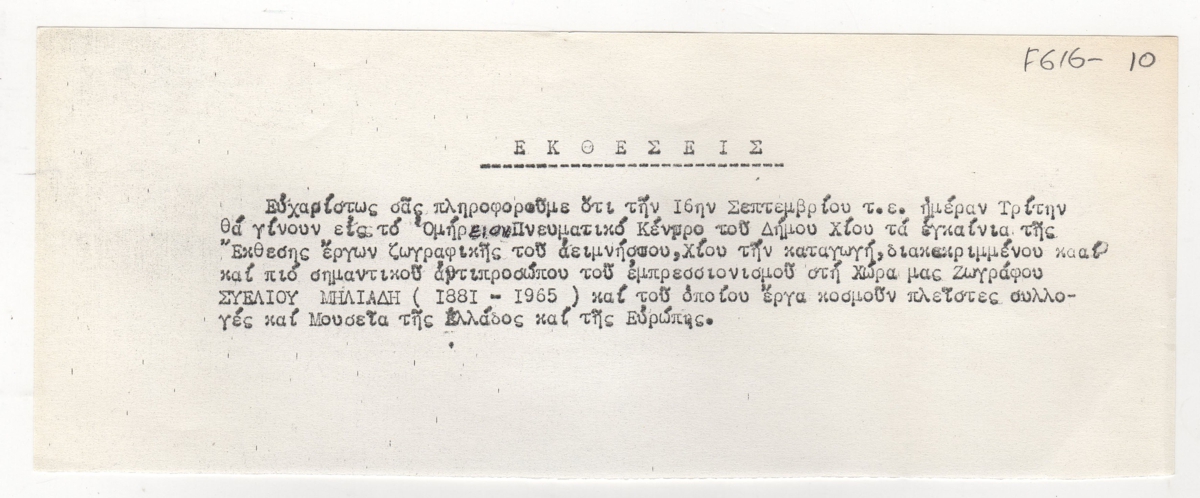 F616- 10
Ε Κ Θ Ε Σ Ε Ι Σ
Εὐχαρίστως σᾶς πληροφοροῦμε ὅτι τήν Ι6ην Σεπτεμβρίου τ.ε. ἡμέραν Τρίτην
θά γίνουν εἰς τό Ὁμήρειον Πνευματικό Κέντρο τοῦ Δήμου Χίου τά ἐγκαίνια τῆς
Ἔκθεσης ἔργων ζωγραφικῆς τοῦ ἀειμνήστου, Χίου τήν καταγωγή, διακεκριμμένου κααί
καί πιό σημαντικοῦ ἀντιπροσώπου τοῦ ἐμπρεσσιονισμοῦ στή Χώρα μας Ζωγράφου
ΣΥΕΛΙΟΥ ΜΗΛΙΑΔΗ ( Ι88Ι - Ι965 ) καί τοῦ ὁποίου ἔργα κοσμοῦν πλεῖστες συλλο-
γές καί Μουσεῖα τῆς Ἑλλάδος καί τῆς Εὐρώπης.